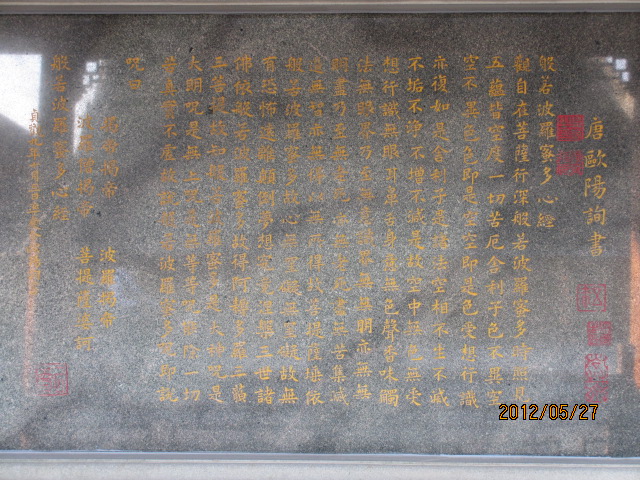 唐歐陽詢書
般若波羅蜜多心經
觀自在菩薩行深般若波羅蜜多時照見
五蘊皆空度一切苦厄舍利子色不異空
空不異色色即是空空即是色受想行識
亦復如是舍利子是諸法空相不生不滅
不垢不淨不增不減是故空中無色無受
想行識無眼耳鼻舌身意無色聲香味觸
法無眼界乃至無意識界無無明亦無無
明盡乃至無老死亦無老死盡無苦集滅
道無智亦無得以無所得故菩提薩埵依
般若波羅蜜多故心無罣礙無罣礙故無
有恐怖遠離顛倒夢想究竟涅槃三世諸
佛依般若波羅蜜多故得阿耨多羅三藐
三菩提故知般若波羅蜜多是大神呪是
大明呪是無上呪是無等等呪能除一切
苦真實不虛故說般若波羅蜜多呪即說
呪曰
揭諦揭帝 波羅揭帝
波羅僧揭帝 菩提薩婆訶
般若波羅蜜多心經
2012/05/27